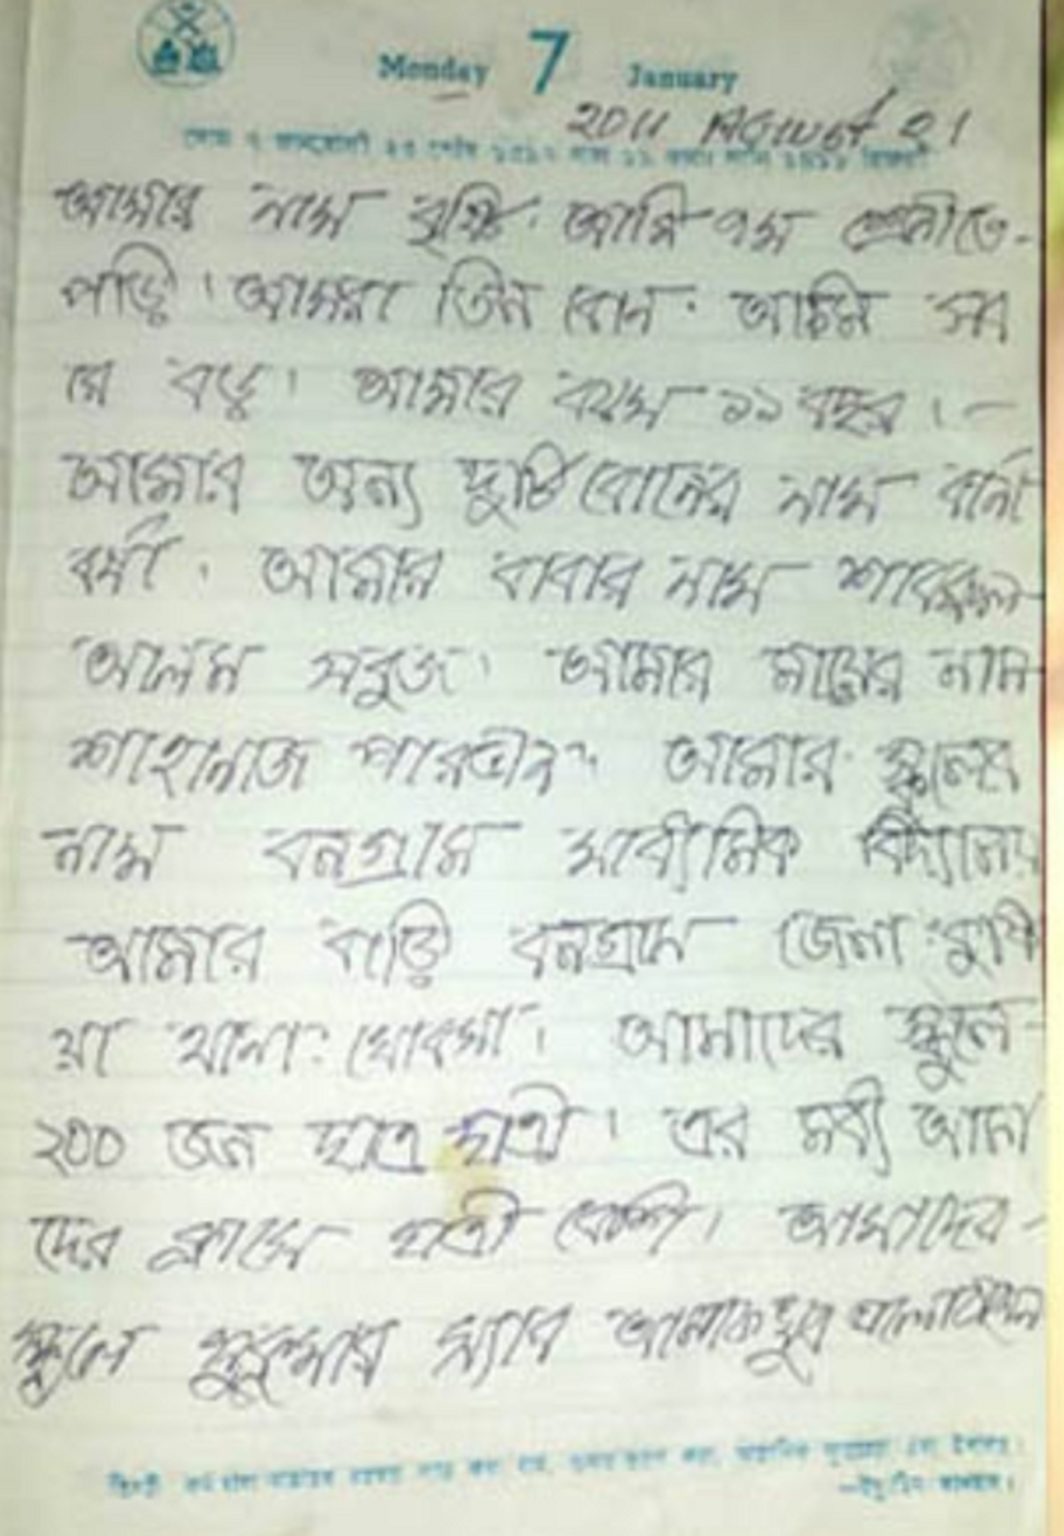 Monday 7 January
2011 August 21
আমার নাম বৃষ্টি। আমি ৭ম শ্রেনীতে-
পড়ি। আমরা তিন বোন। আমি সব
য়ে বড়। আমার বয়স ১১ বছর।-
আমার অন্য দুটি বোনের নাম বর্না
বর্ষা। আমার বাবার নাম
আলম সবুজ। আমার মায়ের নাম
শাহানাজ পারভীন। আমার স্কুলের
নাম বনগ্রাম মাধ্যমিক বিদ্যালয়
আমার বাড়ি বনগ্রামে জেলা: কুষ্টি
য়া থানা: খোকসা। আমাদের স্কুলে
২০০ জন ছাত্র ছাত্রী। এর মধ্য আমা
দের ক্লাসে ছাত্রী বেশি। আমাদের-
স্কুলে স্যার